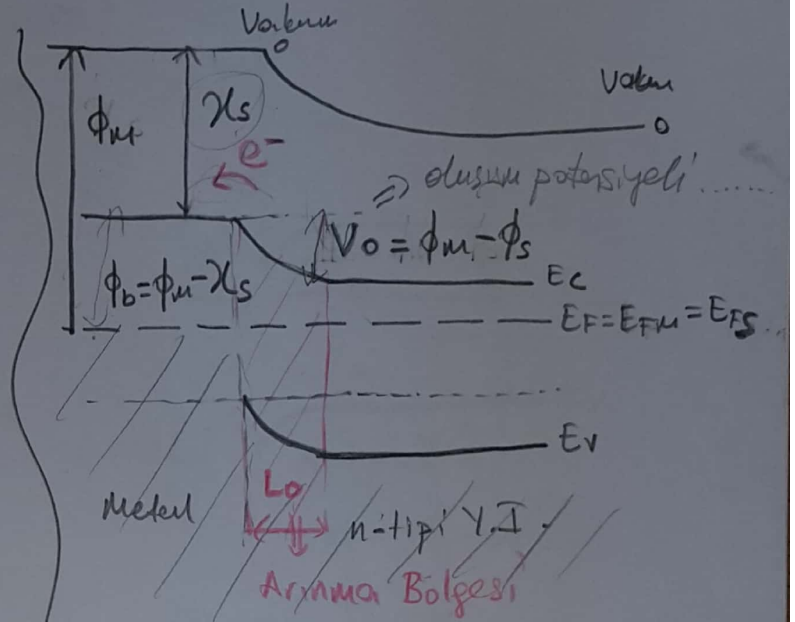 Vakum
Vakum
ϕm
χs
e⁻
⇒ oluşum potansiyeli ........
V₀ = ϕm - ϕs
ϕb = ϕm - χs
Ec
EF = EFM = EFS
Ev
L₀
Metal
n-tipi Y.I.
Arınma Bölgesi